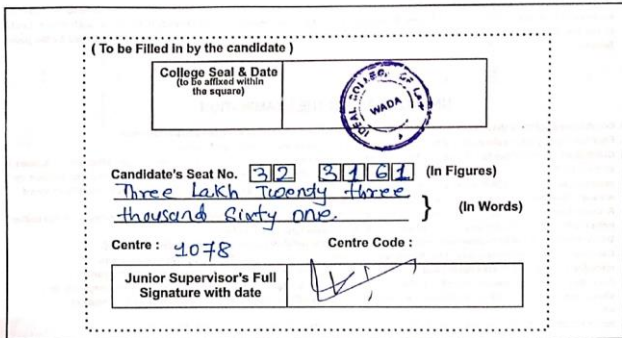 ( To be Filled in by the candidate )
College Seal & Date
(to be affixed within
the square)
IDEAL COLLEGE OF LAW
WADA
Candidate's Seat No. 32 3161 (In Figures)
Three Lakh Twendy three
thousand Sixty one. } (In Words)
Centre : 1078 Centre Code :
Junior Supervisor's Full
Signature with date